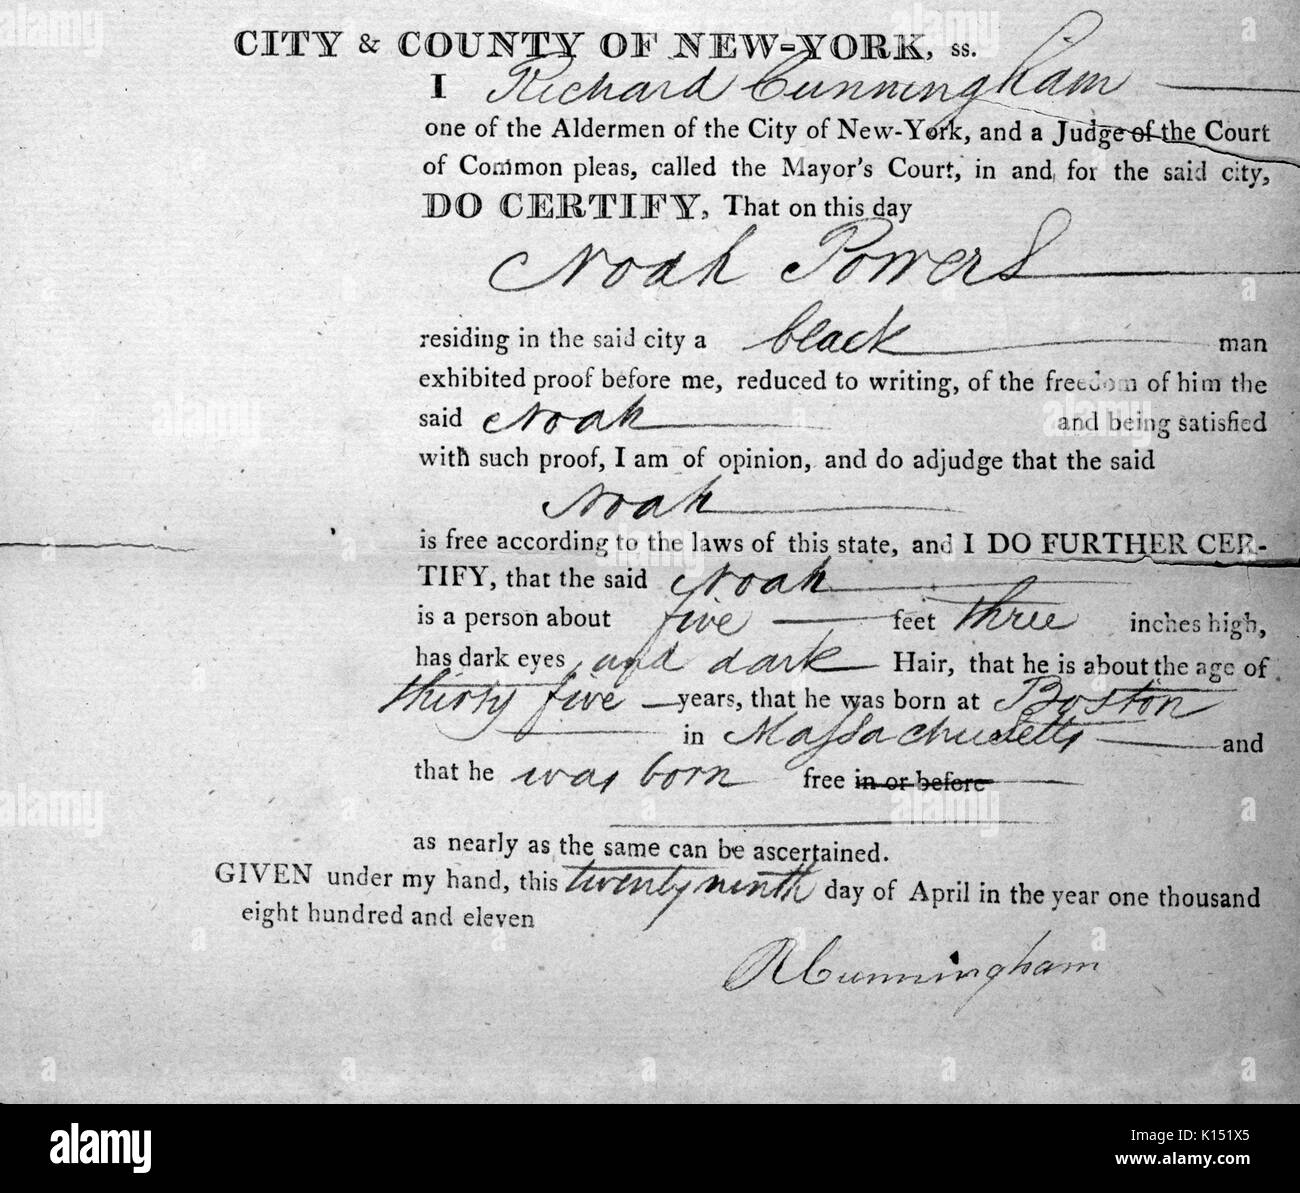 CITY & COUNTY OF NEW-YORK, ss.
I Richard Cunningham
one of the Aldermen of the City of New-York, and a Judge of the Court
of Common pleas, called the Mayor's Court, in and for the said city,
DO CERTIFY, That on this day
Noah Powers
residing in the said city a black man
exhibited proof before me, reduced to writing, of the freedom of him the
said Noah and being satisfied
with such proof, I am of opinion, and do adjudge that the said
Noah
is free according to the laws of this state, and I DO FURTHER CER-
TIFY, that the said Noah
is a person about five feet three inches high,
has dark eyes and dark Hair, that he is about the age of
thirty five years, that he was born at Boston
in Massachusetts and
that he was born free in or before
as nearly as the same can be ascertained.
GIVEN under my hand, this twenty ninth day of April in the year one thousand
eight hundred and eleven
R Cunningham
alamy
Image ID: K151X5
www.alamy.com